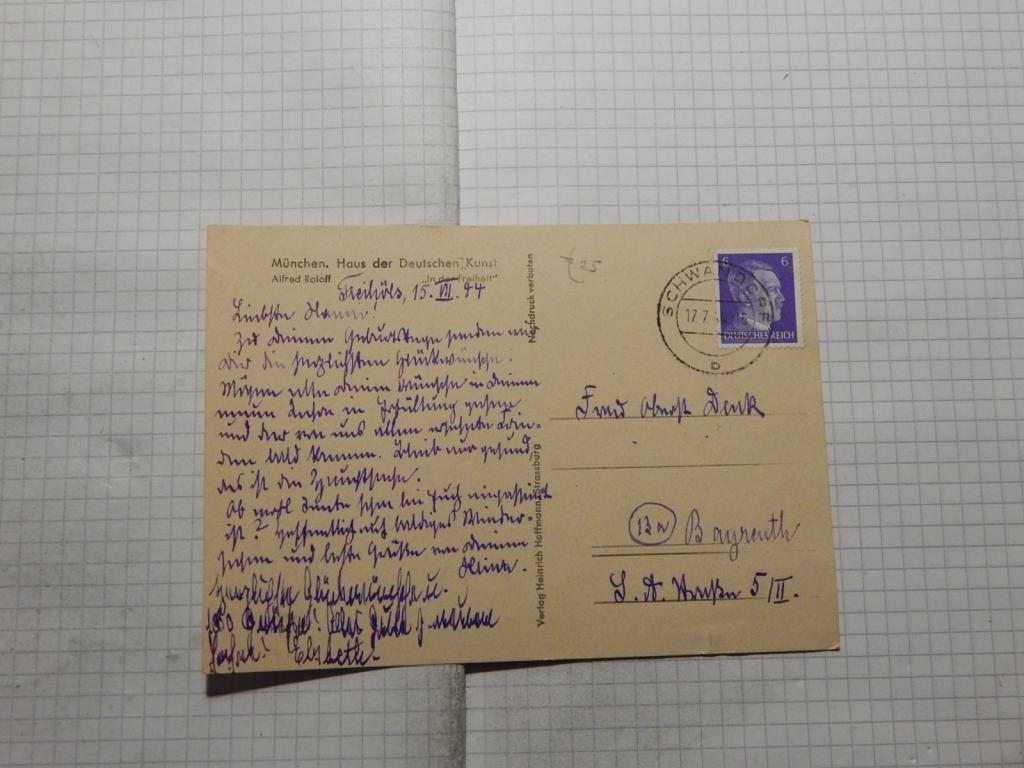 München. Haus der Deutschen Kunst
Alfred Roloff „In der Freiheit"
Nachdruck verboten
Verlag Heinrich Hoffmann, Strassburg
Freihöls, 15. VII. 44
Liebste Hanne!
Zu deinem Geburtstage senden wir
dir die herzlichsten Glückwünsche.
Mögen alle deine Wünsche in deinem
neuen Leben in Erfüllung gehen
und der von uns allen ersehnte Frie-
den bald kommen. Bleib nur gesund,
das ist die Hauptsache.
Ob wohl Tante schon bei Euch
ist? Hoffentlich auf baldiges Wieder-
sehen und beste Grüße von deiner
Herzlichste Glückwünsche u.
Elsbeth.
25
SCHWANDORF
17.7.4
b
6 6
DEUTSCHES REICH
Frau Oberst Denk
13a Bayreuth
5/II.